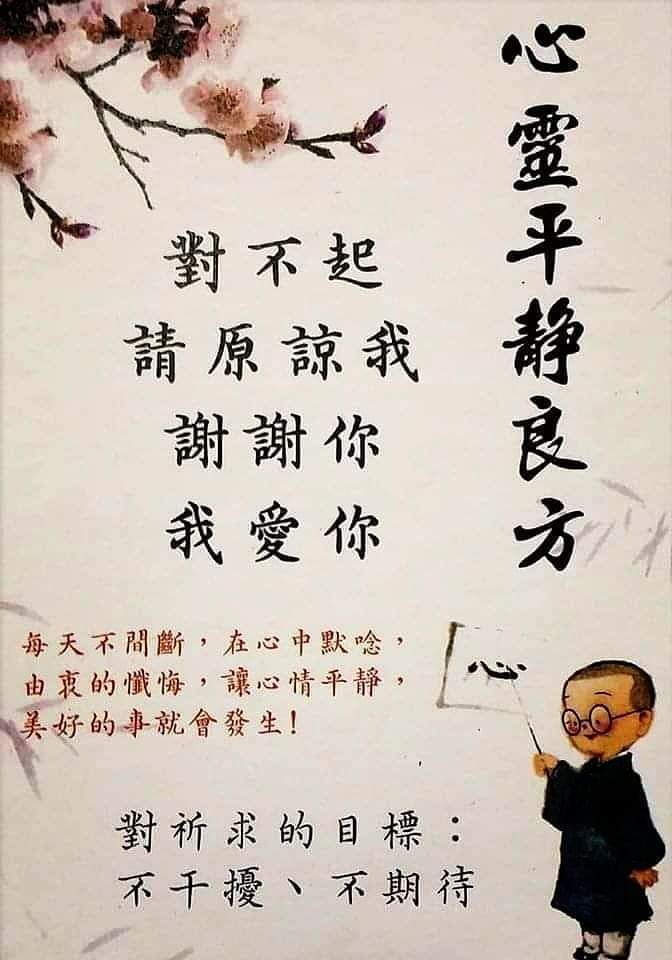 心靈平靜良方
對不起
請原諒我
謝謝你
我愛你
每天不間斷，在心中默唸，
由衷的懺悔，讓心情平靜，
美好的事就會發生！
心
對祈求的目標：
不干擾、不期待